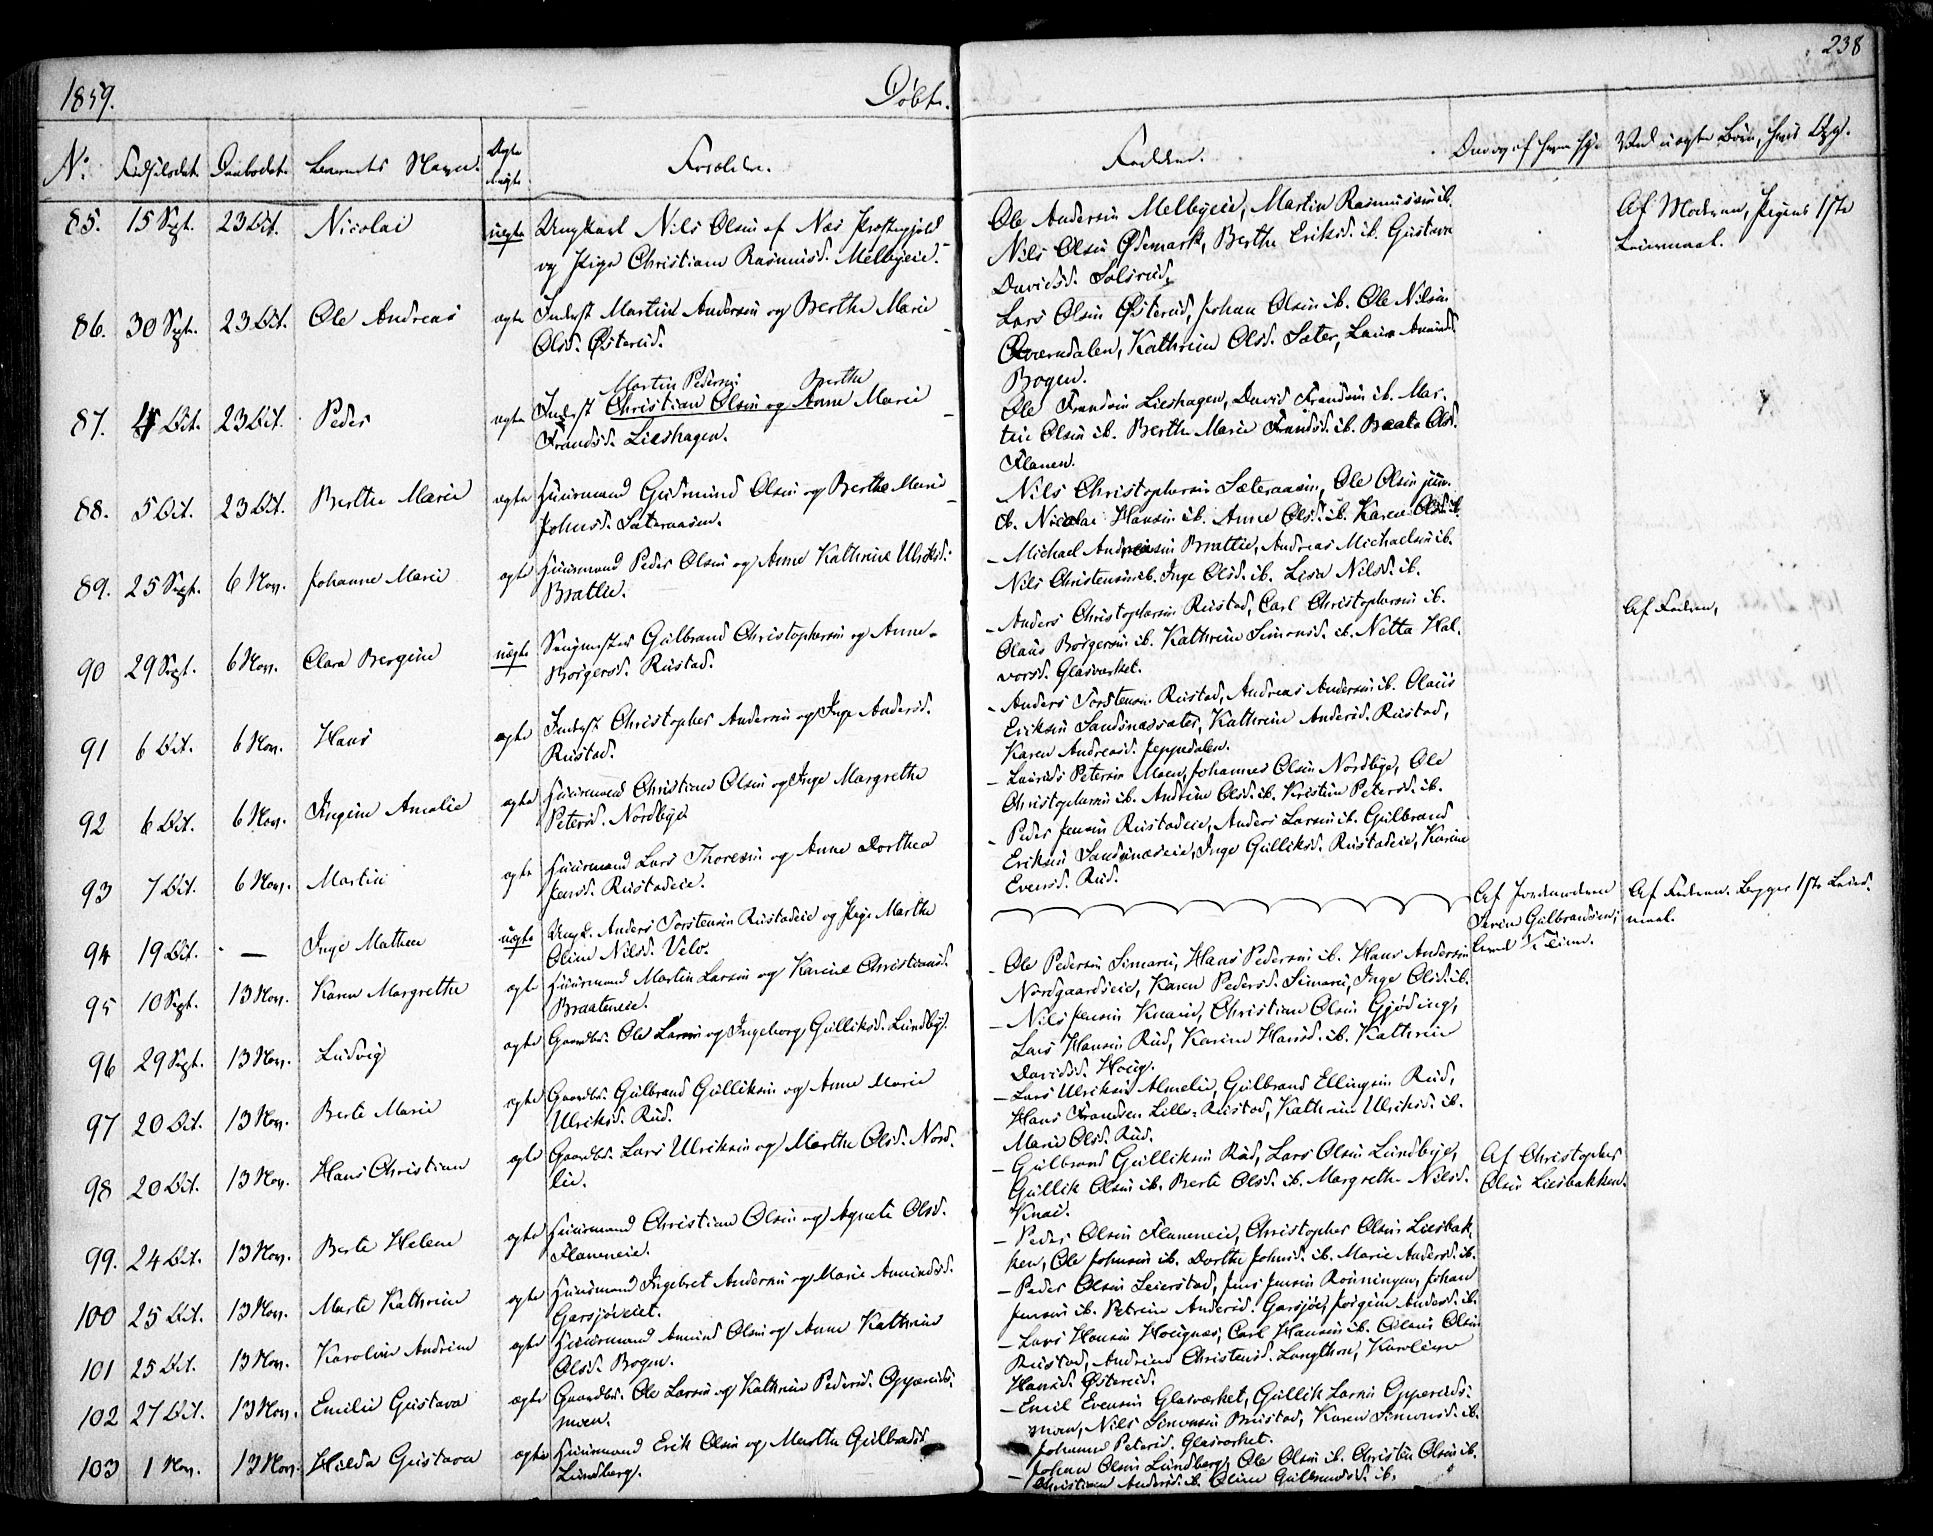 1859. Döbte.
238
No. Fødselsdat. Daabsdat. Barnets Navn. Ægte Uægte Forældre. Faddere.
85. 15 Sept. 23 Oct. Nicolai uægte Ungkarl Nils Olsen af Næs Præstegjeld
og Pige Christiane Rasmusd. Melbyeie.
Ole Andersen Melbyeie, Martin Rasmussen ib.
Nils Olsen Ødemark, Berthe Eriksd. ib. Gustava
Davidsd. Solsrud.
Af Moderen, Pigens 1ste
Leiermaal.
86. 30 Sept. 23 Oct. Ole Andreas ægte Inderst Martin Andersen og Berthe Marie
Olsd. Østerud.
Lars Olsen Østerud, Johan Olsen ib. Ole Nilsen
Qværndalen, Kathrine Olsd. Sæter, Laura Amundsd.
Bogen.
87. 4 Oct. 23 Oct. Peder ægte Martin Pedersen Berthe
Inderst Christian Olsen og Anne Marie
Frandsd. Lieshagen.
Ole Frandsen Lieshagen, David Frandsen ib. Mar-
tin Olsen ib. Berthe Marie Frandsd. ib. Beate Olsd.
Flanen.
88. 5 Oct. 23 Oct. Berthe Marie ægte Huusmand Gudmund Olsen og Berthe Marie
Johnsd. Sæteraasen.
Nils Christophersen Sæteraasen, Ole Olsen jun.
ib. Nicolai Hansen ib. Anne Olsd. ib. Karen Olsd. ib.
89. 25 Sept. 6 Nov. Johanne Marie ægte Huusmand Peder Olsen og Anne Kathrine Ulriksd.
Brattlie.
- Michael Andreasen Brattlie, Andreas Michaelsen ib.
Nils Christensen ib. Inge Olsd. ib. Lisa Nilsd. ib.
90 29 Sept. 6 Nov. Clara Bergine uægte Gulbrand Christophersen og Anne
Börgersd. Rustad.
- Anders Christophersen Rustad, Carl Christophersen ib.
Olaus Börgersen ib. Kathrine Simensd. ib. Netta Hal-
vorsd. Glasværket.
Af Faderen,
91 6 Oct. 6 Nov. Hans ægte Inderst Christopher Andersen og Inge Andersd.
Rustad.
- Anders Torstensen Rustad, Andreas Andersen ib. Olaus
Eriksen Sandsnæssæter, Kathrine Andersd. Rustad,
Karen Andreasd. Jeppedalen.
92 6 Oct. 6 Nov. Ingine Amalie ægte Huusmand Christian Olsen og Inge Margrethe
Petersd. Nordbye.
- Laurids Petersen Moen, Johannes Olsen Nordbye, Ole
Christophersen ib. Andrine Olsd. ib. Kristine Petersd. ib.
93 7 Oct. 6 Nov. Martin ægte Huusmand Lars Thoresen og Anne Dorthea
Jensd. Rustadeie.
- Peder Jensen Rustadeie, Anders Larsen ib. Gulbrand
Eriksen Sandsnæseie, Inge Gulliksd. Rustadeie, Karine
Evensd. Rud.
94 19 Oct. - Inge Mathea uægte Ungk. Anders Torstensen Rustadeie og Pige Marthe
Oline Nilsd. Velo.
Af Jordemoderen
Karen Gulbrandsen,
Af Faderen. Begges 1ste Leier-
maal.
95 10 Sept. 13 Nov. Karen Margrethe ægte Huusmand Martin Larsen og Karine Christiansd.
Braateneie.
- Ole Pedersen Simarud, Hans Pedersen ib. Hans Andersen
Nordgaardseie, Karen Pedersd. Simarud, Inge Olsd. ib.
96 29 Sept. 13 Nov. Ludvig ægte Gaardbr. Ole Larsen og Ingeborg Gulliksd. Lundby.
- Nils Jensen Knarud, Christian Olsen Gjöding,
Lars Hansen Rud, Karine Hansd. ib. Kathrine
Davidsd. Houg.
97 20 Oct. 13 Nov. Berte Marie ægte Gaardbr. Gulbrand Gulliksen og Anne Marie
Ulriksd. Rud.
- Lars Ulriksen Almelie, Gulbrand Ellingsen Rud,
Hans Frandsen Lille-Rustad, Kathrine Ulriksd. ib.
Marie Olsd. Rud.
98 20 Oct. 13 Nov. Hans Christian ægte Gaardbr. Lars Ulriksen og Marthe Olsd. Nord-
lie.
- Gulbrand Gulliksen Rud, Lars Olsen Lundbye,
Gullik Olsen ib. Berte Olsd. ib. Margrethe Nilsd.
Knai.
Af Christopher
Olsen Liesbakken.
99. 24 Oct. 13 Nov. Berte Helene ægte Huusmand Christian Olsen og Agnete Olsd.
Flaneneie.
- Peder Olsen Flaneneie, Christopher Olsen Liesbak-
ken, Ole Johnsen ib. Dorthe Johnsd. ib. Marie Andersd. ib.
100 25 Oct. 13 Nov. Marte Kathrine ægte Huusmand Ingebret Andersen og Marie Amundsd.
Garsjøeiet.
- Peder Olsen Leierstad, Jens Jensen Rönningen, Johan
Jensen ib. Petrine Andersd. Garsjøe, Jörgine Andersd. ib.
101 25 Oct. 13 Nov. Karoline Andrine ægte Huusmand Amund Olsen og Anne Kathrine
Olsd. Bogen.
- Lars Hansen Hougnæs, Carl Hansen ib. Olaus Olsen
Rustad, Andrine Christensd. Langthon, Karoline
Hansd. Østerud.
102 27 Oct. 13 Nov. Emilie Gustava ægte Gaardbr. Ole Larsen og Kathrine Pedersd. Opperuds-
moen.
- Emil Evensen Glasværket, Gullik Larsen Opperuds-
moen, Nils Simensen Brustad, Karen Simensd. ib.
Johanne Petersd. Glasværket.
103 1 Nov. 13 Nov. Hilda Gustava ægte Huusmand Erik Olsen og Marthe Gulbrandsd.
Lundberg.
- Johan Olsen Lundberg, Ole Olsen ib. Christen Olsen ib.
Christiane Andersd. ib. Oline Gulbrandsd. ib.